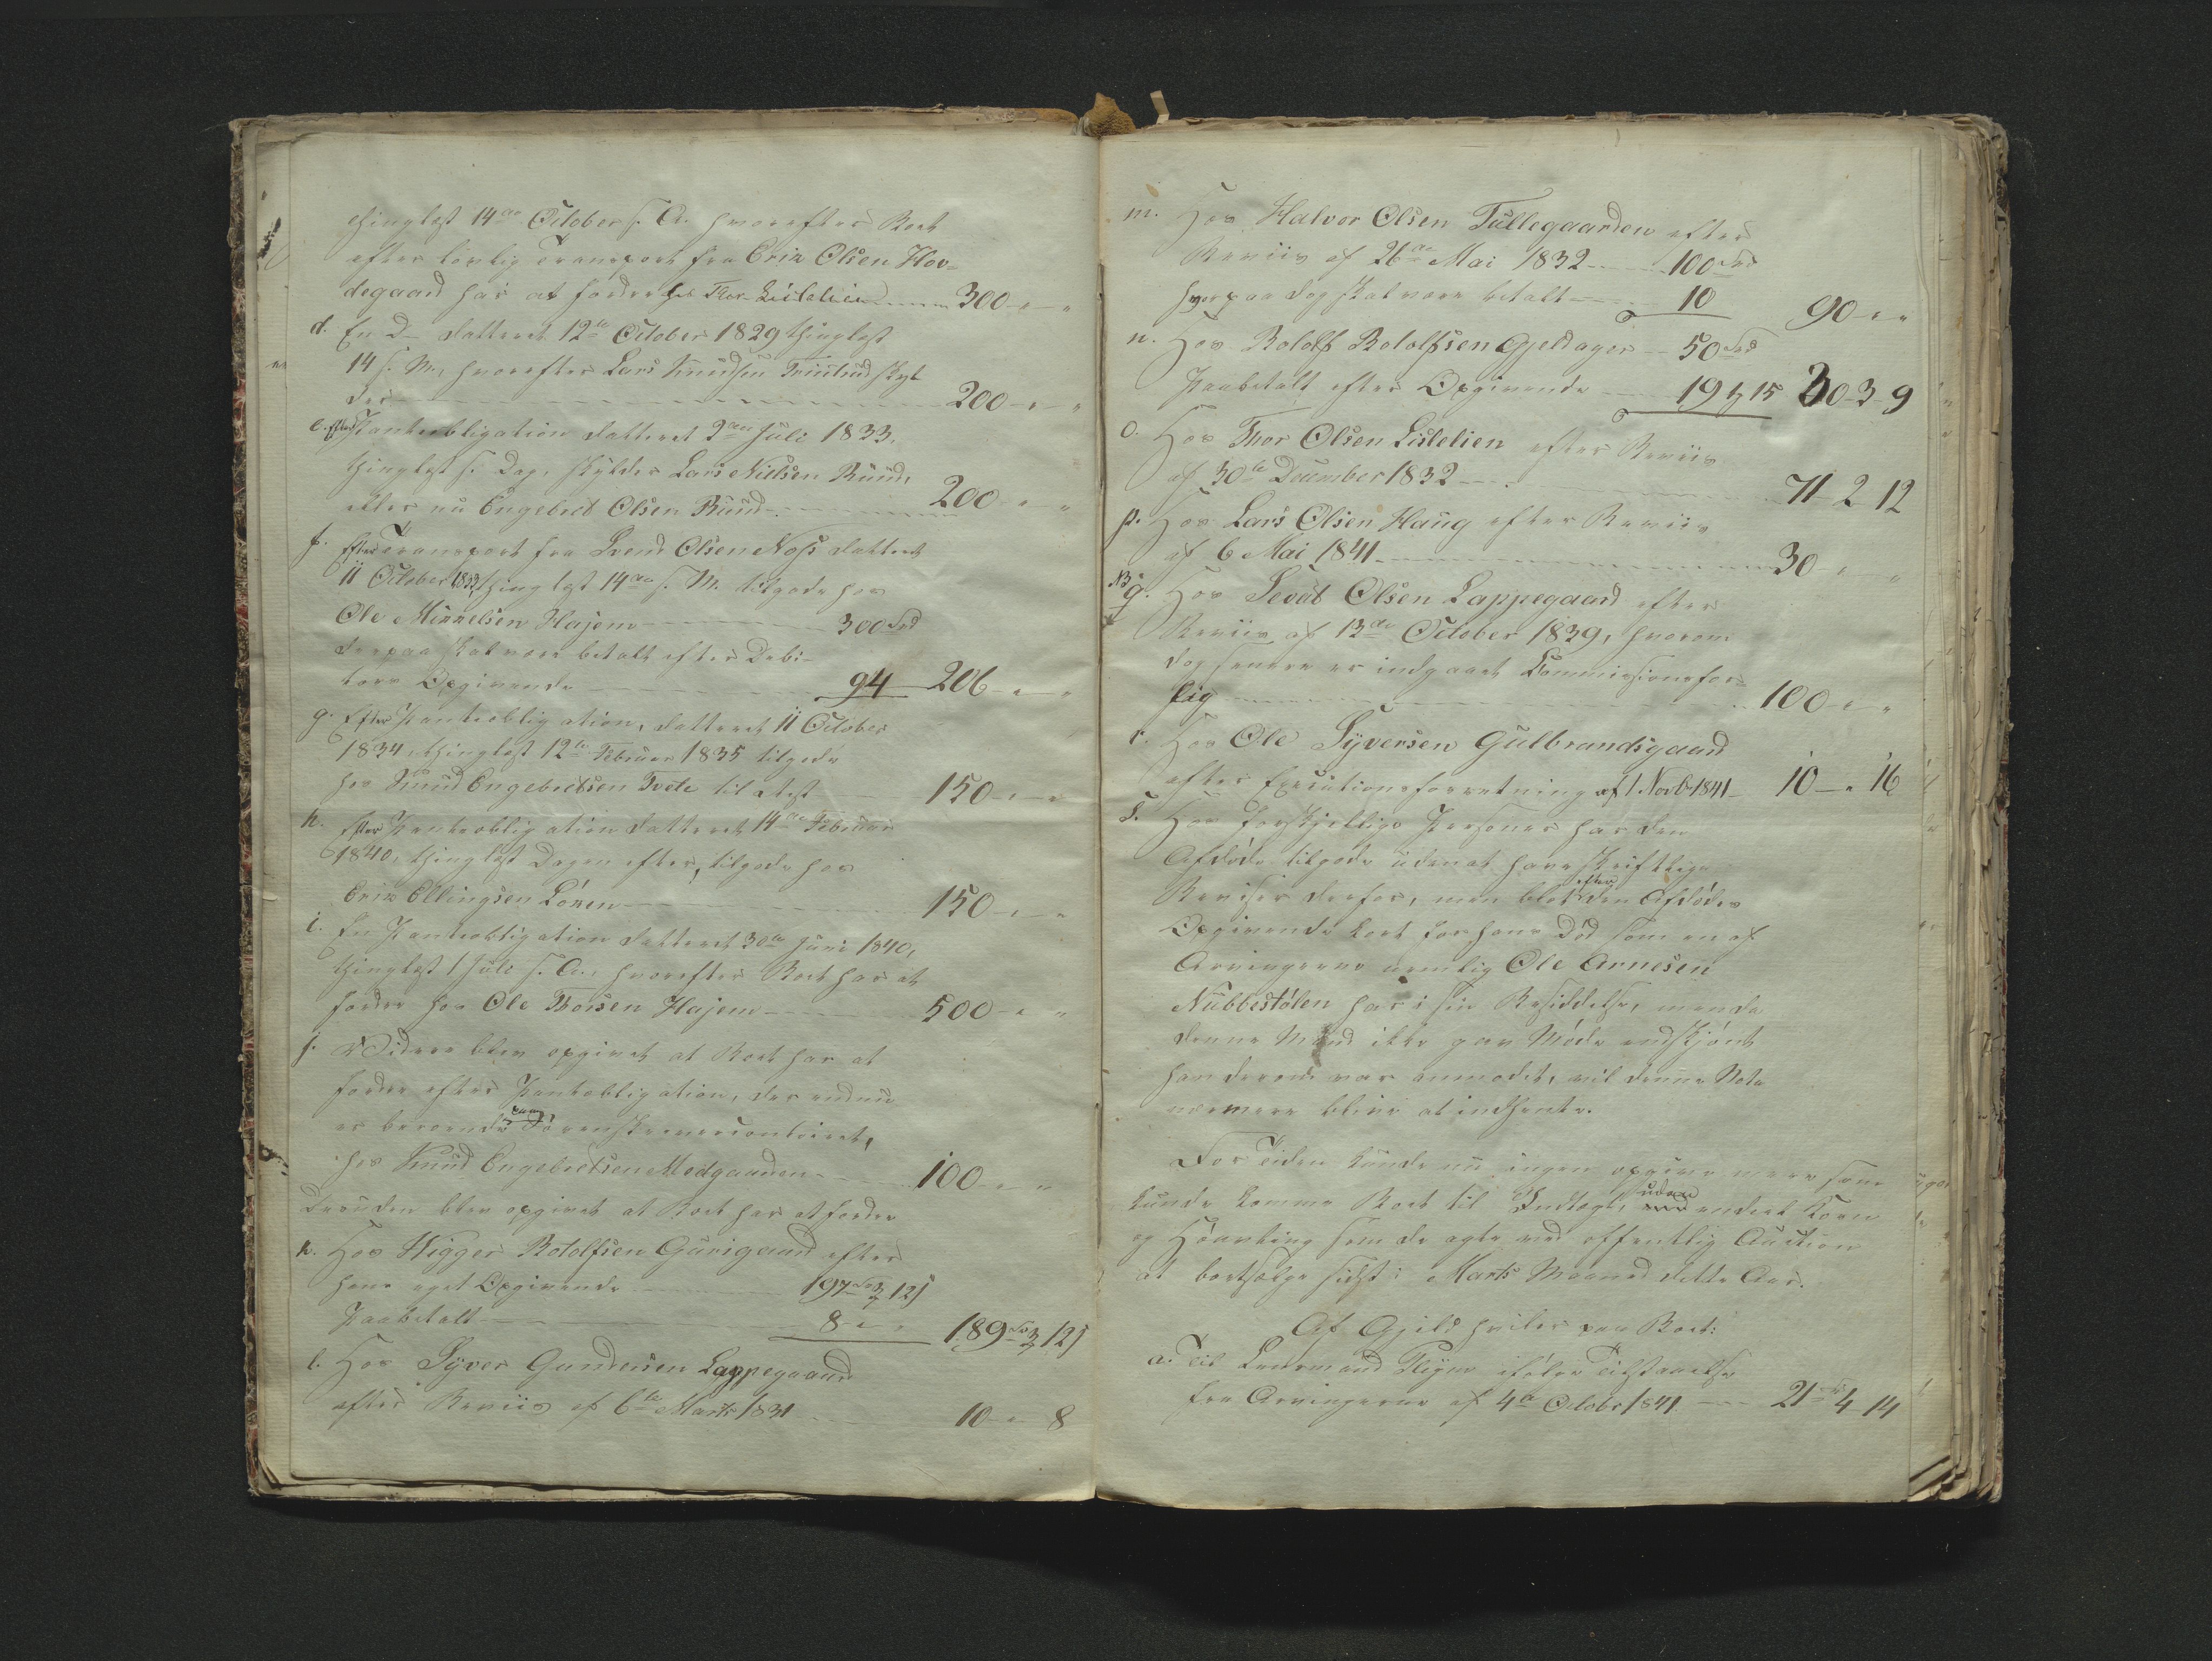 thinglæst 14de October s. A. hvorefter Boet
efter lovlig Transport fra Erik Olsen Hov-
degaard har at fordre hos Thor Lislelien 300 - " - "
d. En D- datteret 12te October 1829 thinglæst
14 s. M., hvorefter Lars Knudsen Trintrud skyl-
der 200 - " - "
e. Efter Panteobligation datteret 2den Juli 1833,
thinglæst s. Dag, skylder Lars Nielsen Ruud,
eller nu Engebret Olsen Ruud 200 - " - "
f. Efter Transport fra Svend Olsen Noss datteret
11 October 1833, thinglæst 14de s. M. tilgode hos
Ole Mikkelsen Hajem 300 Spd
derpaa skal være betalt efter Debi-
tors Opgivende 94 206 - " - "
g. Efter Panteobligation, datteret 11 October
1834, thinglæst 12te Februar 1835 tilgode
hos Knud Engebretsen Tvete til Rest 150 - " - "
h. Efter Panteobligation datteret 14de Februar
1840, thinglæst Dagen efter, tilgode hos
Erik Ellingsen Løken 150 - " - "
i. En Panteobligation datteret 30te Juni 1840,
thinglæst 1 Juli s. A., hvorefter Boet har at
fordre hos Ole Thorsen Hajem 500 - " - "
j. Videre blev opgivet at Boet har at
fordre efter Pantobligation, der endnu
er beroende paa Sorenskrivercontoiret,
hos Knud Engebretsen Medgaarden 100 - " - "
Desuden blev opgivet at Boet har at fordre
k. Hos Wigger Rotolfsen Gurigaard efter
hans eget Opgivende 197 Spd 3 12ß
Paabetalt 8 " " 189 Spd 3 12ß
l. Hos Syver Gundersen Lappegaard
efter Beviis af 6te Marts 1831 10 - " 8
m. Hos Halvor Olsen Tullegaarden efter
Beviis af 26de Mai 1832 100 Spd
hvorpaa dog skal være betalt 10 90 - " "
n. Hos Rololf Rololfsen Gjeldager 50 Spd
Paabetalt efter Opgivende 19 1/2 15 30 - 3 - 9
o. Hos Thor Olsen Lislelien efter Beviis
af 30te December 1832 71 - 2 12
p. Hos Lars Olsen Haug efter Beviis
af 6 Mai 1841 30 " "
NB q. Hos Sevat Olsen Lappegaard efter
Beviis af 13de October 1839, hvorom
dog senere er indgaaet Commissionsfor-
lig 100 - " "
r. Hos Ole Syversen Gulbrandsgaard
efter Executionsforretning af 1 Novb 1841 10 - " 16
s. Hos forskjellige Personer har den
Afdøde tilgode uden at have skriftlige
Beviser derfor, men blot efter den Afdødes
Opgivende kort før hans Død som en af
Arvingerne nemlig Ole Arnesen
Nubbestølen har i sin Besiddelse, men da
denne Mand ikke gav Møde endskjønt
han derom var anmodet, vil denne Nota
nærmere blive at indhente.
For Tiden kunde nu ingen opgive mere som
kunde komme Boet til Indtægt, uden endeel Korn
og Høavling som de agte ved offentlig Auction
at bortsælge sidst i Marts Maaned dette Aar.
Af Gjeld hviler paa Boet:
a. Til Lensmand Thyne ifølge Tilstaaelse
fra Arvingerne af 4de Octobr 1841 21 Spd 4 14